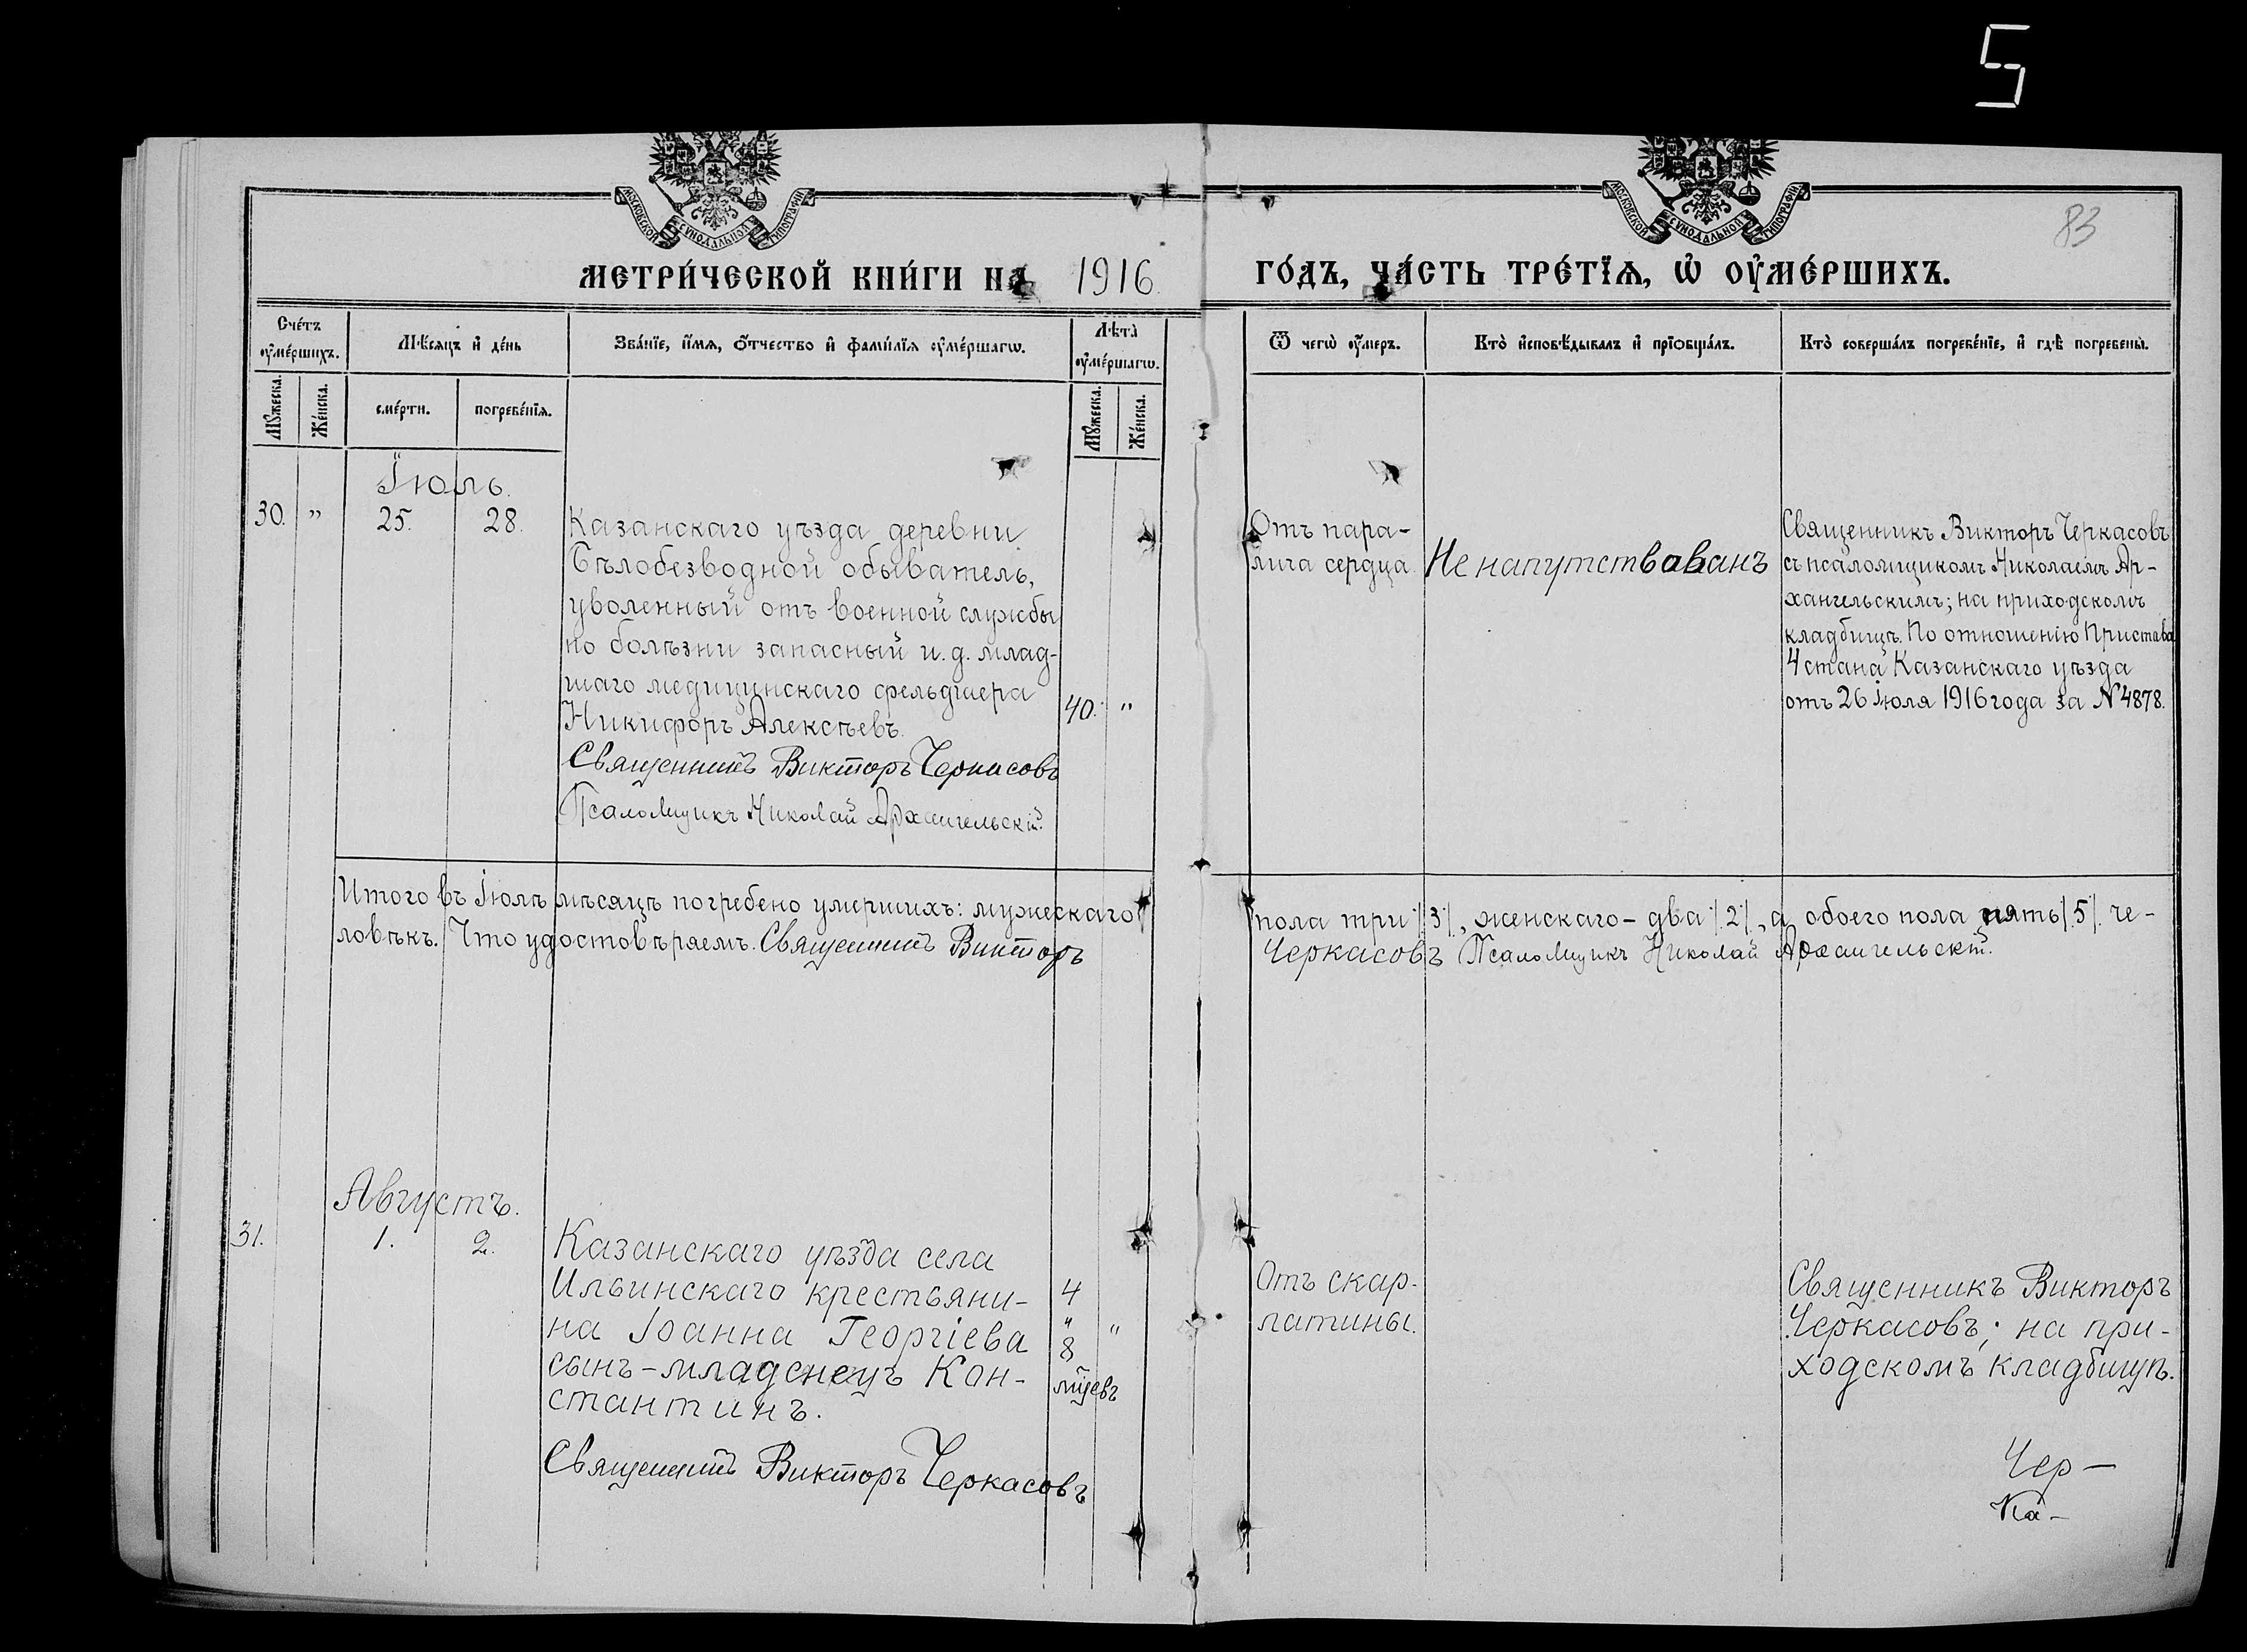 5
МОСКОВСКОЙ СѴНОДАЛЬНОЙ ТИПОГРАФІИ
МОСКОВСКОЙ СѴНОДАЛЬНОЙ ТИПОГРАФІИ
83
МЕТРИ́ЧЕСКОЙ КНИ́ГИ НА 1916.
ГО́ДЪ, ЧА́СТЬ ТРЕ́ТЇѦ, Ѡ҆ ОУ҆МЕ́РШИХЪ.
Сче́тъ оу҆ме́ршихъ.
Мѣ́сѧцъ и҆ де́нь
Зва́нїе, и҆́мѧ, ѻ҆́тчество и҆ фами́лїѧ оу҆ме́ршагѡ.
Лѣта̀ оу҆ме́ршагѡ.
Ѿ чегѡ̀ оу҆́меръ.
Кто̀ и҆сповѣ́дывалъ и҆ прїѻбща́лъ.
Кто̀ соверша́лъ погребе́нїе, и҆ гдѣ̀ погребены̀.
Мꙋ́жеска.
Же́нска.
сме́рти.
погребе́нїѧ.
Мꙋ́жеска.
Же́нска.
Іюль.
30. " 25. 28.
Казанскаго уѣзда деревни
Бѣлобезводной обыватель,
уволенный отъ военной службы
по болѣзни запасный и. д. млад-
шаго медицинскаго фельдшера
Никифоръ Алексѣевъ.
40. "
Священникъ Викторъ Черкасовъ
Псаломщикъ Николай Архангельскій.
Отъ пара-
лича сердца.
Не напутствованъ
Священникъ Викторъ Черкасовъ
съ псаломщикомъ Николаемъ Ар-
хангельскимъ; на приходскомъ
кладбищѣ. По отношенію Пристава
4 стана Казанскаго уѣзда
отъ 26 Іюля 1916 года за № 4878.
Итого въ Іюлѣ мѣсяцѣ погребено умершихъ: мужескаго пола три /3/, женскаго - два /2/, а обоего пола пять /5/ че-
ловѣкъ. Что удостовѣряемъ. Священникъ Викторъ Черкасовъ Псаломщикъ Николай Архангельскій.
Августъ.
31. 1. 2.
Казанскаго уѣзда села
Ильинскаго крестьяни-
на Іоанна Георгіева
сынъ-младенецъ Кон-
стантинъ.
4
" "
8
мцевъ
Священникъ Викторъ Черкасовъ
Отъ скар-
латины.
Священникъ Викторъ
Черкасовъ; на при-
ходскомъ кладбищѣ.
Чер-
ка-